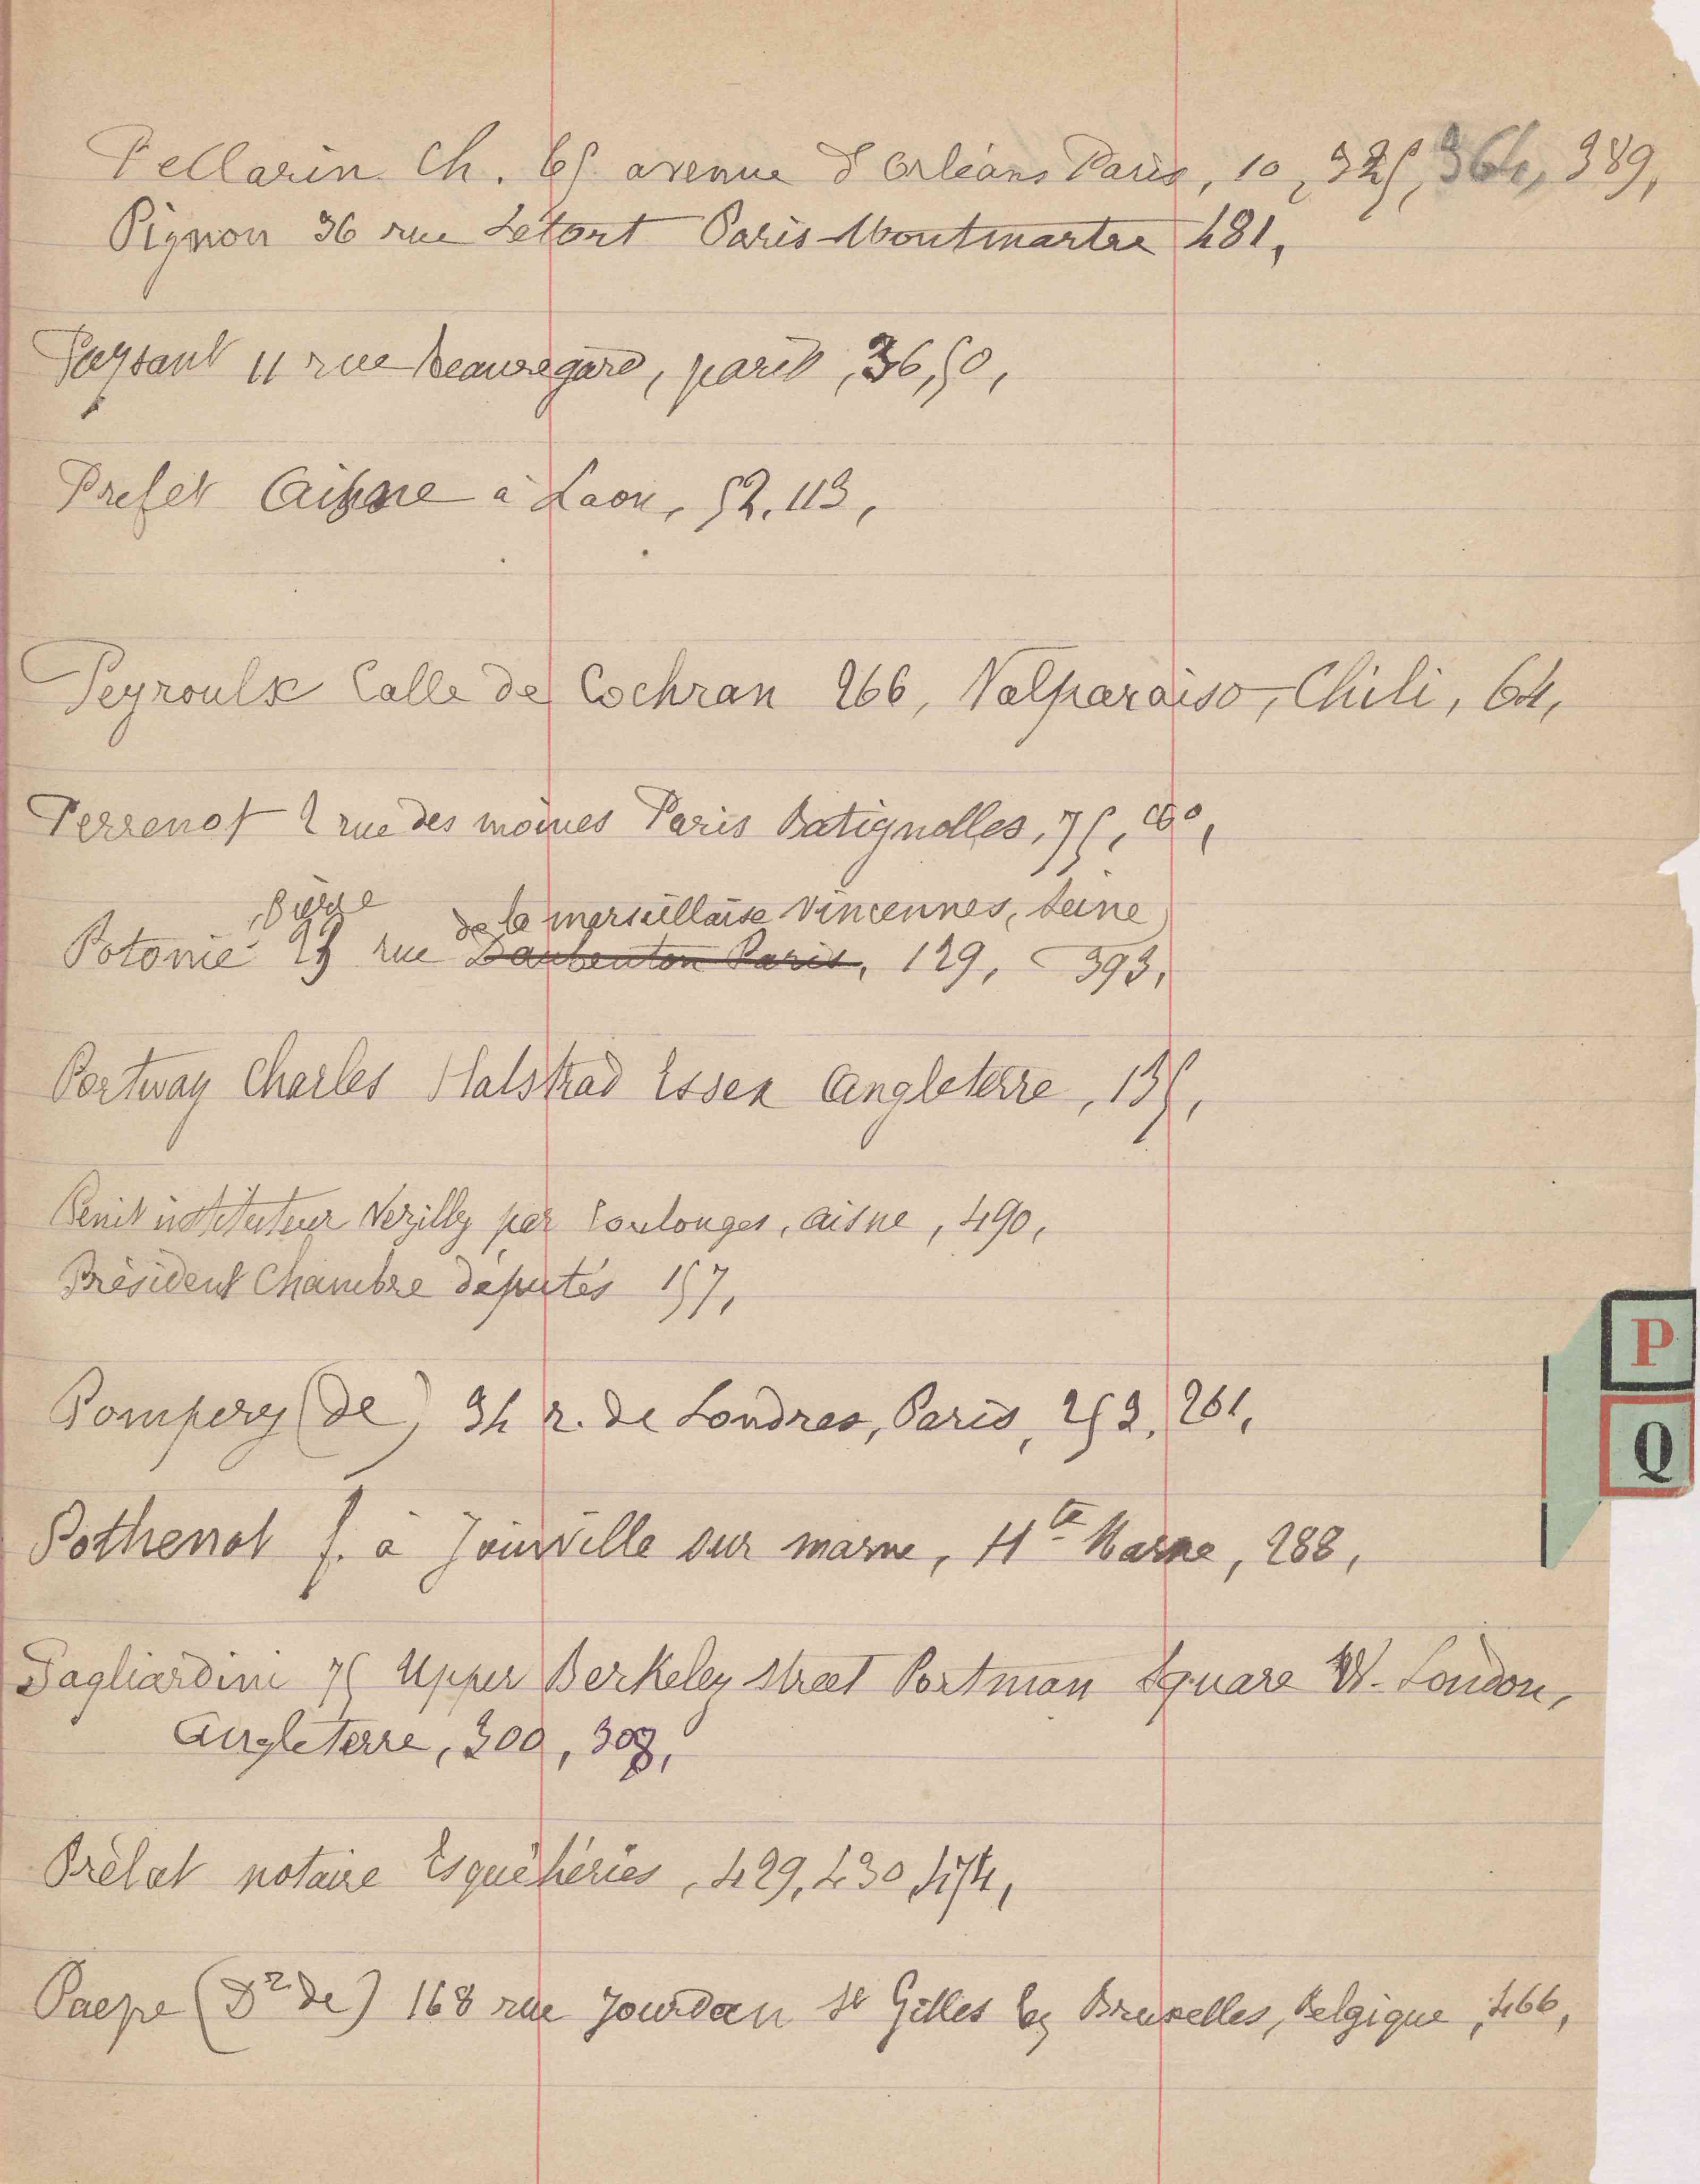 Pellarin Ch. 65 avenue d'Orléans Paris, 10, 325, 364, 389,
Pignon 36 rue Letort Paris-Montmartre 481,
Paysant 11 rue beauregard, paris, 36, 50,
Prefet Aisne à Laon, 52, 113,
Peyroulx Calle de Cochran 266, Valparaiso, Chili, 64,
Perrenot 2 rue des moines Paris Batignolles, 75,
de la marseillaise Vincennes, Seine
Potonié rue Daubenton Paris, 129, 393,
Portway Charles Halstead Essex Angleterre, 135,
Penit instituteur Vezilly par Coulonges, aisne, 490,
Président Chambre députés 157,
Pompery (de) 34 r. de Londres, Paris, 252, 261,
Pothenot f. à Joinville sur marne, Hte Marne, 288,
Pagliardini 75 Upper Berkeley street Portman Square W. London,
Angleterre, 300, 308,
Prélat notaire Esquéhéries, 429, 430, 474,
Paepe (Dr de) 168 rue Jourdan St Gilles lez Bruxelles, Belgique, 466,
P
Q